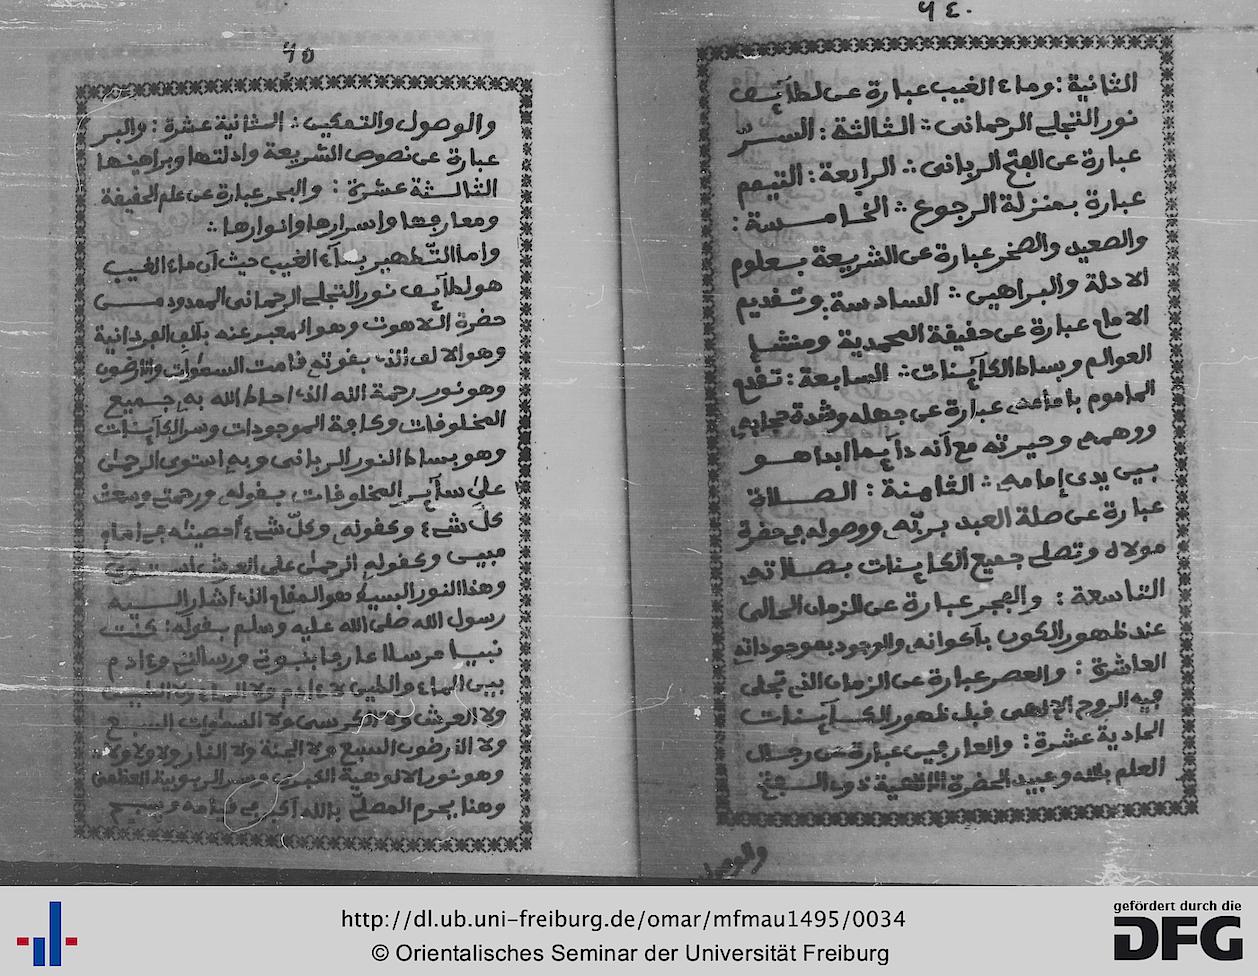 ٦٤٠
الثانية : وماء الغيب عبارة عن لطآئف
نور التجلي الرحماني ∴ الثالثة : السرّ
عبارة عن الفتح الرباني ∴ الرابعة : التيمم
عبارة بمنزلة الرجوع ∴ الخامسة :
والصعيد والصخر عبارة عن الشريعة بعلوم
الادلة والبراهين ∴ السادسة : وتقديم
الامام عبارة عن حقيقة المحمدية ومنشإ
العوالم وبساط الكآينات ∴ السابعة : تقدم
الماموم بامامه عبارة عن جهله وشدة حجابه
ووهمه وحيرته مع أنه دآيما ابدا هو
بين يدى إمامه ∴ الثامنة : الصلاة
عبارة عن صلة العبد بربّه ووصوله في حضرة
مولاه وتصلى جميع الكاينات بصلاته
التاسعة : والفجر عبارة عن الزمان الحالى
عند ظهور الكون بأكوانه والوجود بموجوداته
العاشرة : والعصر عبارة عن الزمان الذى تجلى
فيه الروح الإلهى قبل ظهور الكآينات
الحادية عشرة : والعارفين عبارة عن رجال
العلم بالله وعبيد الحضرة الالهية ذوى
والوصول
٦٥
والوصول والتمكين ∴ الثانية عشرة : والبر
عبارة عن نصوص الشريعة وادلتها وبراهينها
الثالثة عشرة : والبحر عبارة عن علم الحقيقة
ومعارفها واسرارها وانوارها ∴
واما التّطهير بمآء الغيب حيث أن ماء الغيب
هو لطآئف نور التجلي الرحماني الممدود من
حضرة اللاهوت وهو المعبر عنه بألف الفردانية
وهو الالف الذى بقوته قامت السموات والارضون
وهو نور رحمة الله الذى احاط الله به جميع
المخلوقات وكافة الموجودات وسر الكآينات
وهو بساط النور الرباني وبه استوى الرحمن
على سآير المخلوقات بقوله ورحمتى وسعت
كل شىء وكقوله وكلّ شىء أحصيناه في إمام
مبين وكقوله الرحمن على العرش استوى
وهذا النور البسيط هو المقام الذى أشار إليه
رسول الله صلى الله عليه وسلم بقوله : كنت
نبيا مرسلا عارفا بنبوتى ورسالتى وءادم
بين الماء والطين لا ءادم ولا الماء ولا الطين
ولا العرش ولا الكرسى ولا السموات السبع
ولا الأرضون السبع ولا الجنة ولا النار ولا ولا ولا
وهو نور الالوهية الكبرى وسر الربوبية العظمى
وهنا يحرم المصلى بالله أكبر في قيامه ويسبح
http://dl.ub.uni-freiburg.de/omar/mfmau1495/0034
© Orientalisches Seminar der Universität Freiburg
gefördert durch die
DFG